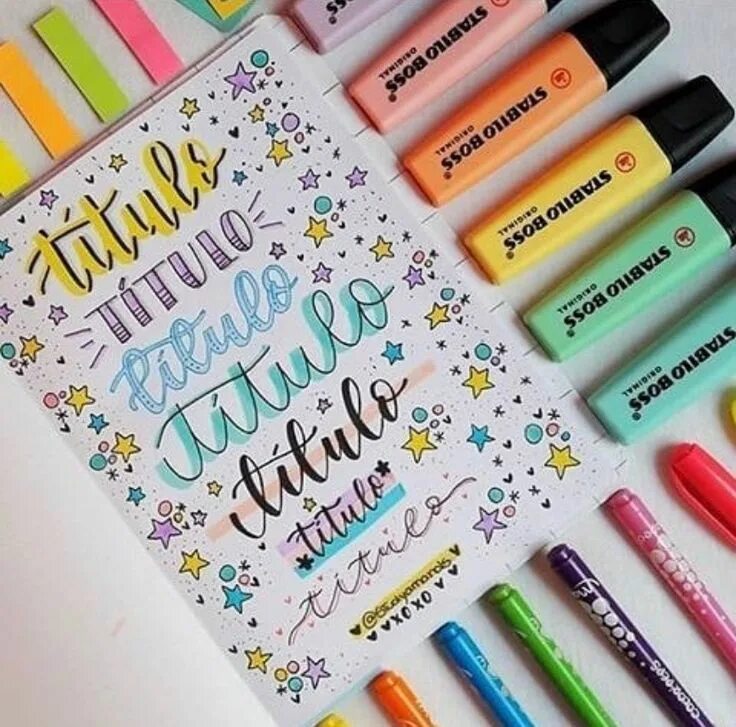 título
TÍTULO
título
Título
título
título
título
XOXO
BOSS
STABILO BOSS
ORIGINAL
STABILO BOSS
ORIGINAL
STABILO BOSS
ORIGINAL
STABILO BOSS
ORIGINAL
STABILO BOSS
ORIGINAL